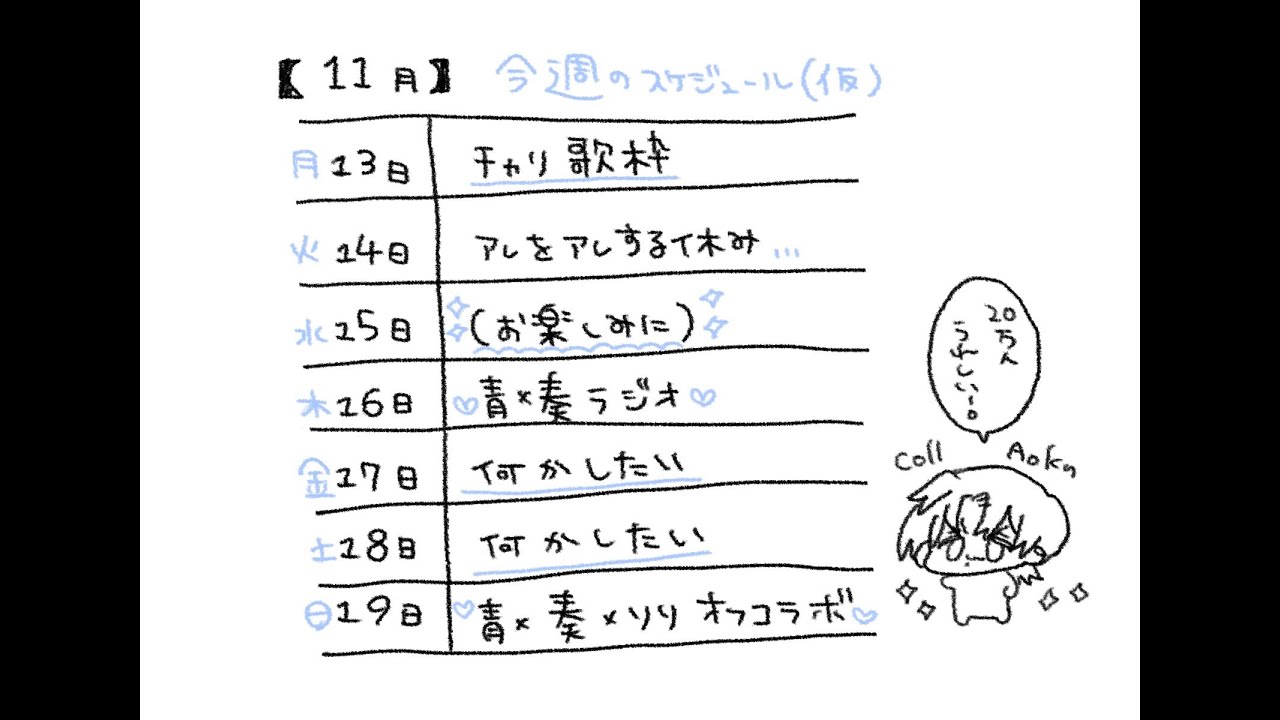 【11月】 今週のスケジュール(仮)
月 13日 チャリ 歌枠
火 14日 アレをアレする休み...
水 15日 (お楽しみに)
木 16日 青×奏 ラジオ
金 17日 何かしたい
土 18日 何かしたい
日 19日 青×奏×リリ オフコラボ
20万人
うれしい~。
Coll